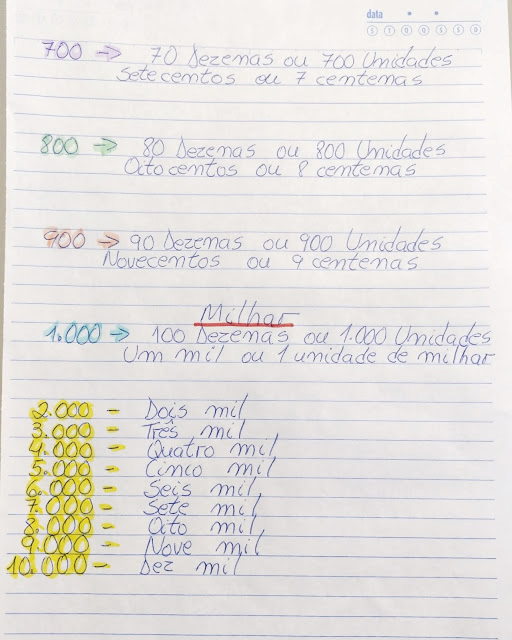 data
S T Q Q S S D
700 → 70 Dezenas ou 700 Unidades
Setecentos ou 7 centenas
800 → 80 Dezenas ou 800 Unidades
Oitocentos ou 8 centenas
900 → 90 Dezenas ou 900 Unidades
Novecentos ou 9 centenas
Milhar
1.000 → 100 Dezenas ou 1.000 Unidades
Um mil ou 1 unidade de milhar
2.000 - Dois mil
3.000 - Três mil
4.000 - Quatro mil
5.000 - Cinco mil
6.000 - Seis mil
7.000 - Sete mil
8.000 - Oito mil
9.000 - Nove mil
10.000 - Dez mil